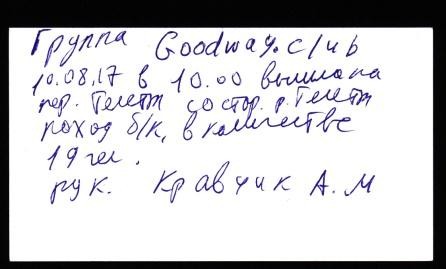 Группа Goodway.club
10.08.17 в 10.00 вышла на
пер. Телети со стор. р. Телети
поход б/к, в количестве
19 чел.
рук. Кравчик А. М